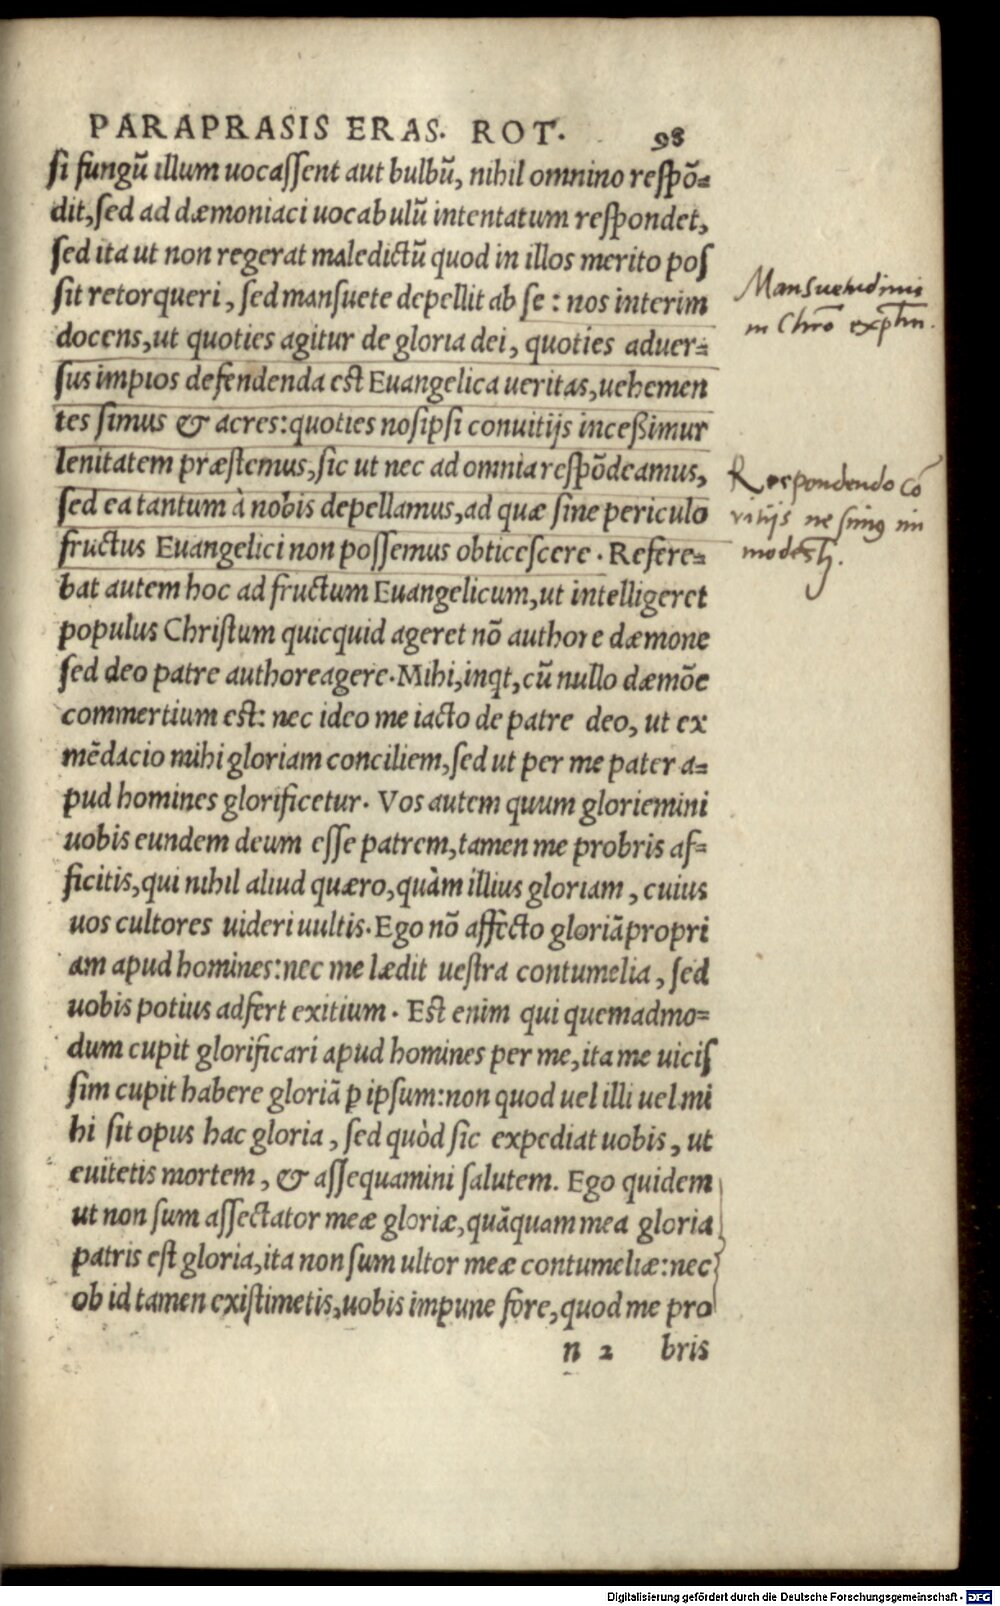 PARAPRASIS ERAS. ROT. 98
si fungũ illum uocassent aut bulbũ, nihil omnino respõ=
dit, sed ad dæmoniaci uocabulũ intentatum respondet,
sed ita ut non regerat maledictũ quod in illos merito pos
sit retorqueri, sed mansuete depellit ab se : nos interim
docens, ut quoties agitur de gloria dei, quoties aduer=
sus impios defendenda est Euangelica ueritas, uehemen
tes simus & acres: quoties nosipsi conuitijs inceßimur
lenitatem præstemus, sic ut nec ad omnia respõdeamus,
sed ea tantum à nobis depellamus, ad quæ sine periculo
fructus Euangelici non possemus obticescere. Refere=
bat autem hoc ad fructum Euangelicum, ut intelligeret
populus Christum quicquid ageret nõ authore dæmone
sed deo patre authore agere. Mihi, inqt, cũ nullo dæmõe
commertium est: nec ideo me iacto de patre deo, ut ex
mẽdacio mihi gloriam conciliem, sed ut per me pater a=
pud homines glorificetur. Vos autem quum gloriemini
uobis eundem deum esse patrem, tamen me probris af=
ficitis, qui nihil aliud quæro, quàm illius gloriam, cuius
uos cultores uideri uultis. Ego nõ affecto gloriã propri
am apud homines: nec me lædit uestra contumelia, sed
uobis potius adfert exitium. Est enim qui quemadmo=
dum cupit glorificari apud homines per me, ita me uicis
sim cupit habere gloriã ꝑ ipsum: non quod uel illi uel mi
hi sit opus hac gloria, sed quòd sic expediat uobis, ut
euitetis mortem, & assequamini salutem. Ego quidem
ut non sum assectator meæ gloriæ, quãquam mea gloria
patris est gloria, ita non sum ultor meæ contumeliæ: nec
ob id tamen existimetis, uobis impune fore, quod me pro
n 2 bris
Mansuetudinis
in Chrõ explm.
Respondendo cõ
vitijs ne simus im
modesti.
Digitalisierung gefördert durch die Deutsche Forschungsgemeinschaft - DFG